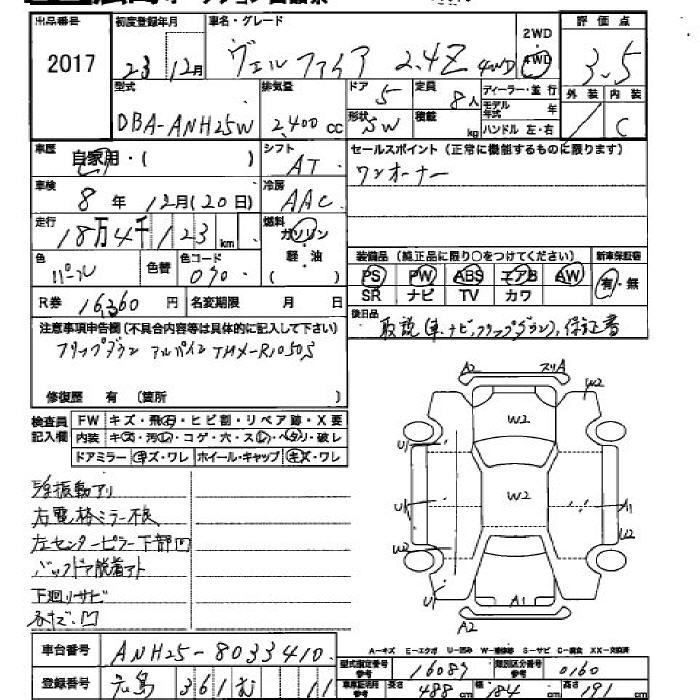 出品番号 初度登録年月 車名・グレード 2WD 4WD 評価点
2017 23 12月 ヴェルファイア 2.4Z 4WD 3.5
型式 排気量 ドア 定員 ディーラー・並行 外装 内装
DBA-ANH25W 2,400 cc 5 8人 モデル年式 年
形状 積載 C
SW kg ハンドル 左・右
車歴 シフト セールスポイント(正常に機能するものに限ります)
自家用・( ) AT ワンオーナー
車検 冷房
8年12月(20日) AAC
走行 燃料
18万4千123km ガソリン
軽・油
( )
色 色替 色コード 装備品(純正品に限り○をつけてください) 新車保証書
パール 070 PS PW ABS エアB AW 有・無
SR ナビ TV カワ
R券 16,360円 名変期限 月 日 後日品
取説(車、ナビ、フリップダウン)、保証書
注意事項申告欄(不具合内容等は具体的に記入して下さい)
フリップダウン アルパイン TMX-R1050S
修復歴 有 (箇所 )
検査員記入欄 FW キズ・飛石・ヒビ割・リペア跡・X要
内装 キズ・汚レ・コゲ・穴・スレ・ヘタリ・破レ
ドアミラー キズ・ワレ ホイール・キャップ キズ・ワレ
右電格ミラー不良
左センターピラー下部凹
バックドア脱着アト
下廻リサビ
A2 スリA W2
W2
U1
U1 W2 A1
W2 U2
U1 A1
A2
A-キズ E-エクボ U-凹み W-補修跡 S-サビ C-腐食 XX-交換済
車台番号 ANH25-8033410
型式指定番号 参考 16087 類別区分番号 参考 0160
登録番号 広島 361 む 11
車庫証明用 参考 長さ 488 cm 幅 184 cm 高さ 191 cm